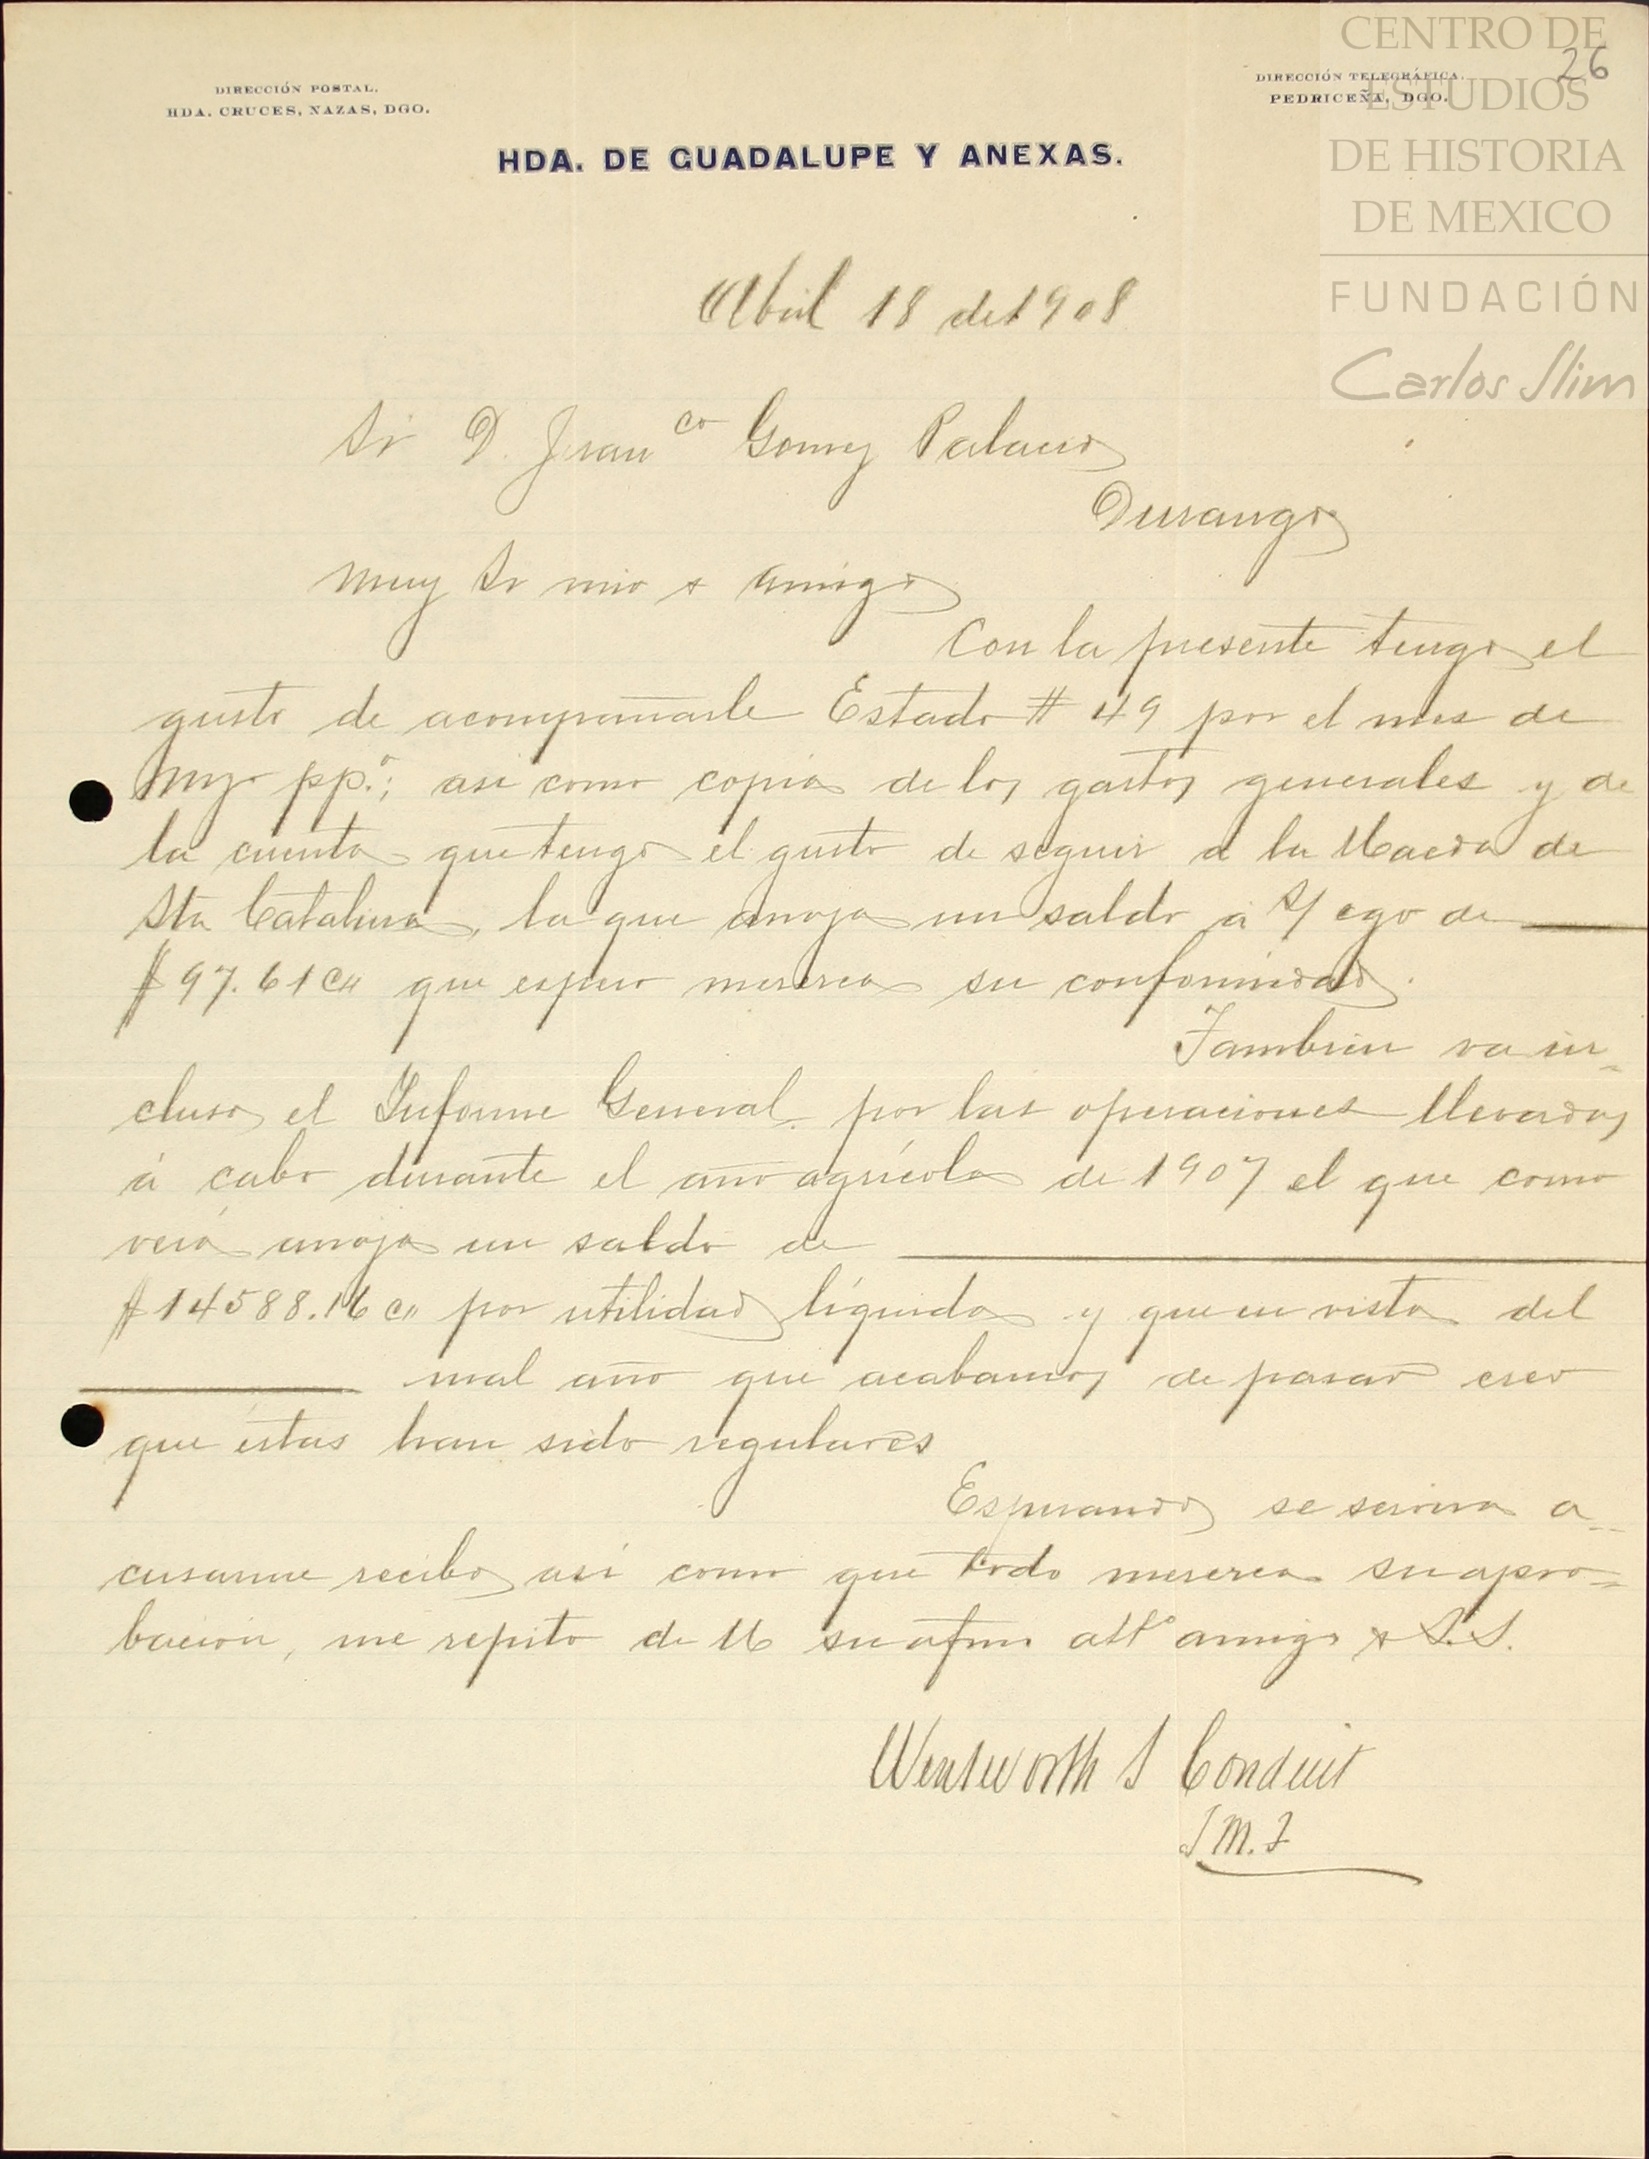 DIRECCIÓN POSTAL.
HDA. CRUCES, NAZAS, DGO.
DIRECCIÓN TELEGRÁFICA.
PEDRICEÑA, DGO.
26
CENTRO DE
ESTUDIOS
DE HISTORIA
DE MEXICO
FUNDACIÓN
Carlos Slim
HDA. DE GUADALUPE Y ANEXAS.
Abril 18 de 1908
Sr D. Franco Gomez Palacio
Durango
Muy Sr mio & amigo
Con la presente tengo el
gusto de acompañarle Estado # 49 por el mes de
Mzo pp.º; asi como copia de los gastos generales y de
la cuenta que tengo el gusto de seguir á la Hacda de
Sta Catalina, la que arroja un saldo á s/ cgo de
$97.61 que espero meresca su conformidad.
Tambien va in-
cluso el Informe General por las operaciones llevadas
á cabo durante el año agrícola de 1907 el que como
verá arroja un saldo de
$14588.16 por utilidad líquida y que en vista del
mal año que acabamos de pasar creo
que éstas han sido regulares
Esperando se servira a-
cusarme recibo, así como que todo meresca su apro-
bacion, me repito de U su afmo atto amigo & S.S.
Wentworth S Conduit
J M. F